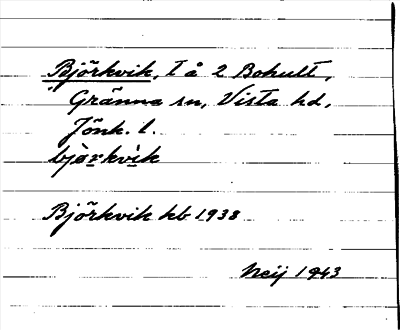 Björkvik, t å 2 Bohult,
Gränna sn, Vista hd,
Jönk. l.
bjàrkvìk
Björkvik kb 1938
Neij 1943